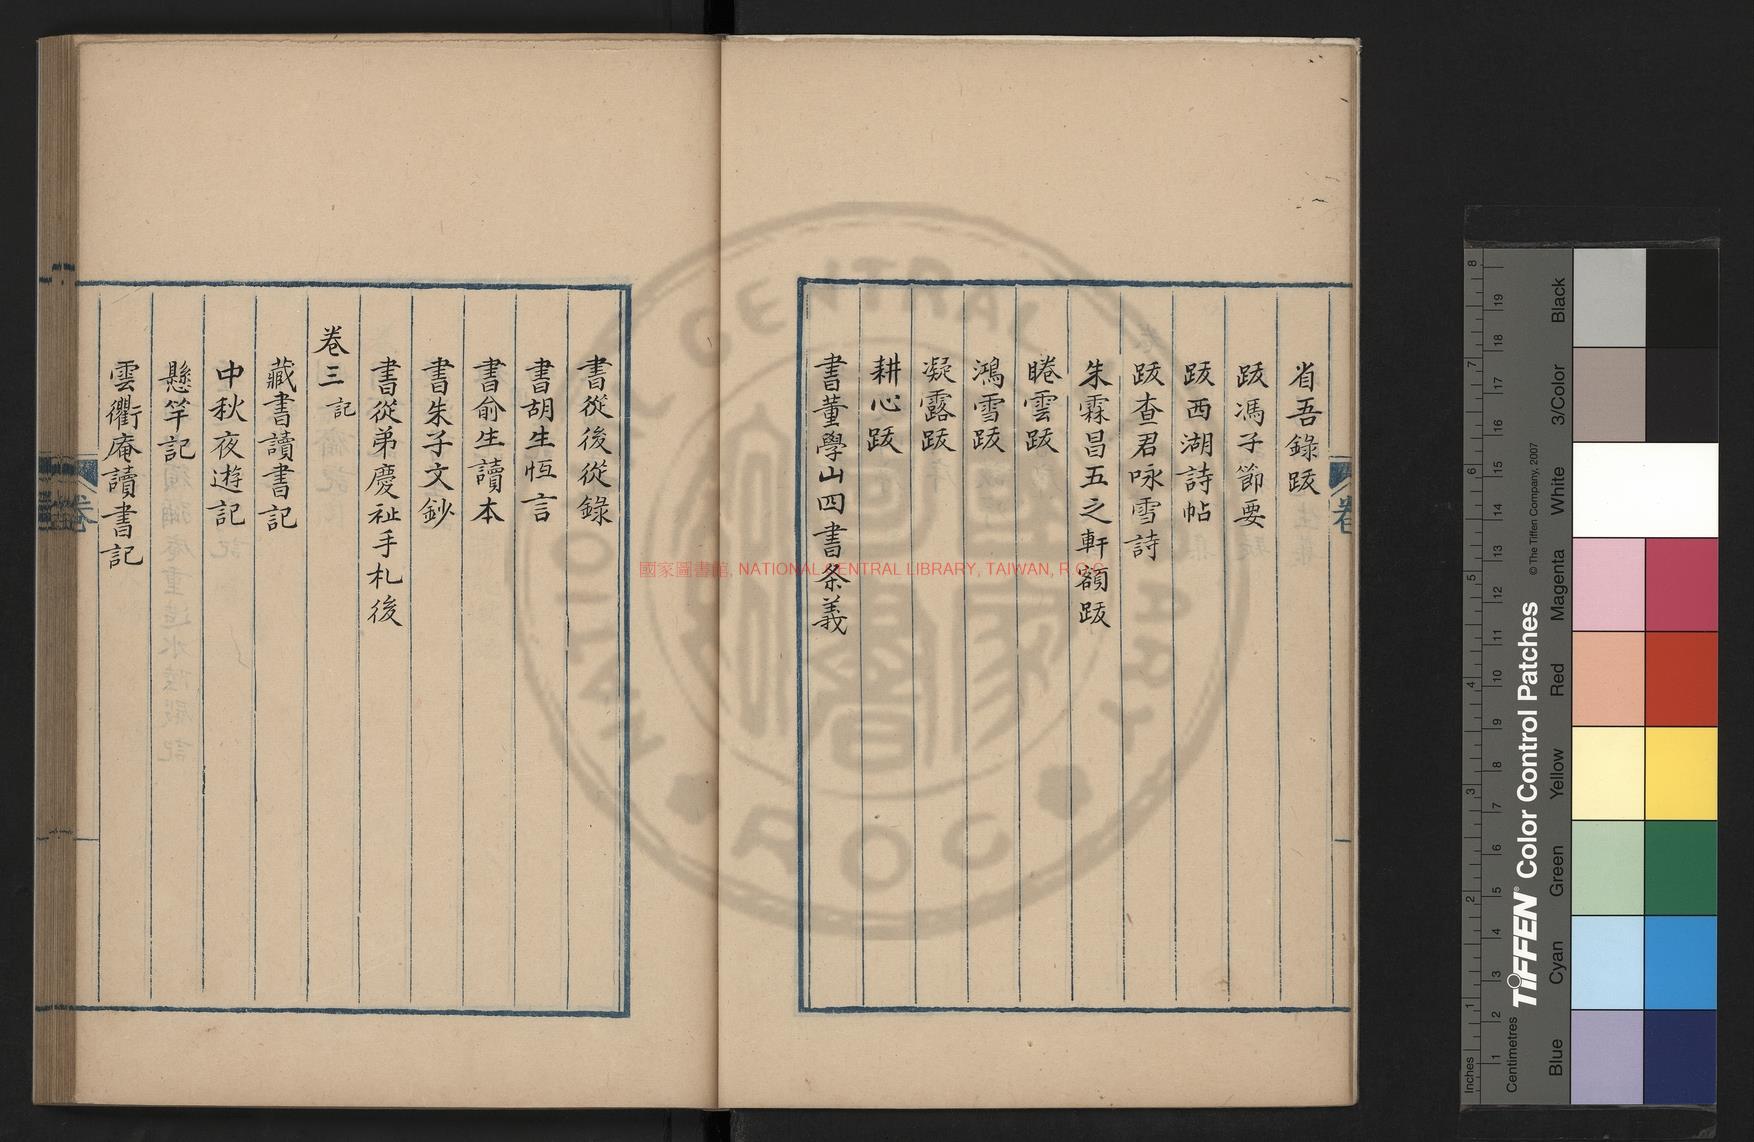 省吾錄跋
跋馮子節要
跋西湖詩帖
跋查君咏雪詩
朱霖昌五之軒額跋
睠雲跋
鴻雪跋
凝露跋
耕心跋
書董學山四書条義
書從後從錄
書胡生恆言
書俞生讀本
書朱子文鈔
書從弟慶祉手札後
卷三 記
藏書讀書記
中秋夜遊記
懸竿記
雲衢庵讀書記
卷
卷
國家圖書館, NATIONAL CENTRAL LIBRARY, TAIWAN, R.O.C
NATIONAL CENTRAL LIBRARY
ROC
TIFFEN® Color Control Patches
© The Tiffen Company, 2007
Inches
Centimetres
Blue
Cyan
Green
Yellow
Red
Magenta
White
3/Color
Black